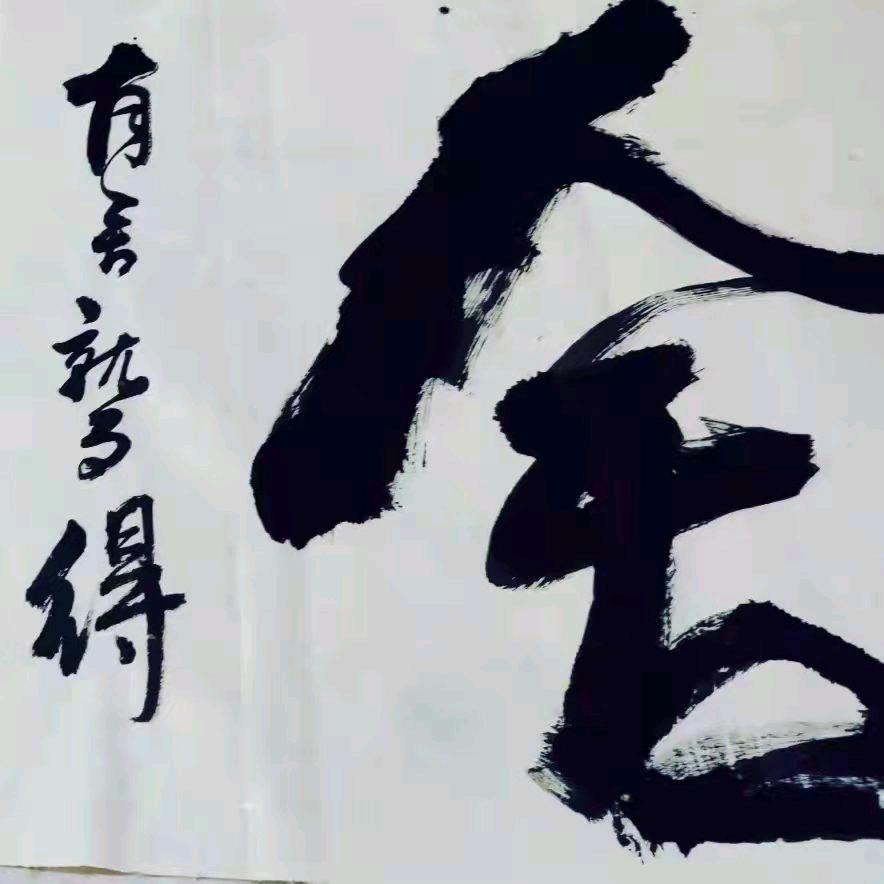 舍
有舍就有得